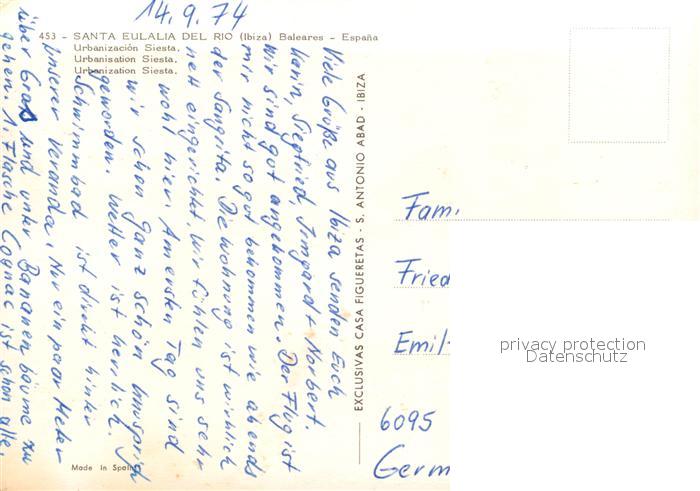 14.9.74
453 - SANTA EULALIA DEL RIO (Ibiza) Baleares - España
Urbanización Siesta.
Urbanisation Siesta.
Urbanization Siesta.
Viele Grüße aus Ibiza senden Euch
Karin, Siegfried, Irmgard + Norbert.
Wir sind gut angekommen. Der Flug ist
mir nicht so gut bekommen wie abends
der Sangria. Die Wohnung ist wirklich
nett eingerichtet, wir fühlen uns sehr
wohl hier. Am ersten Tag sind
wir schon ganz schön
geworden. Wetter ist herrlich.
Schwimmbad ist direkt hinter
unserer Veranda. Nur ein paar Meter
über Gras und unter Bananenbäume zu
gehen. 1. Flasche Cognac ist schon alle.
EXCLUSIVAS CASA FIGUERETAS - S. ANTONIO ABAD - IBIZA
Made in Spain
Fam.
Fried
Emil-
6095
Germ
privacy protection
Datenschutz